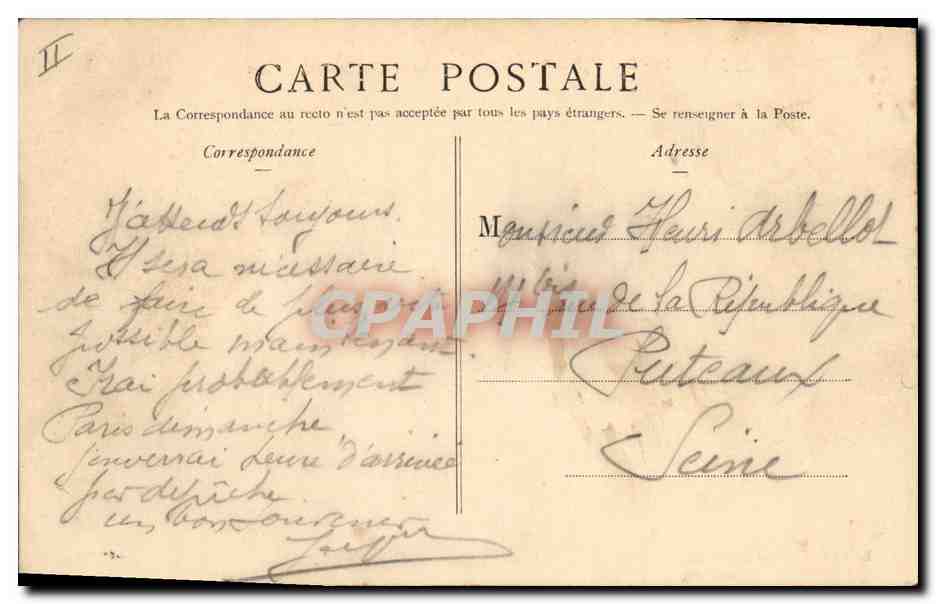 II
CARTE POSTALE
La Correspondance au recto n'est pas acceptée par tous les pays étrangers. — Se renseigner à la Poste.
Correspondance
J'attends toujours.
Il sera nécessaire
de faire le plus
possible maintenant
Irai probablement
Paris dimanche
j'enverrai heure d'arrivée
par dépêche.
un bon souvenir
Adresse
Monsieur Henri Arbellot
bis rue de la République
Puteaux
Seine
CPAPHIL